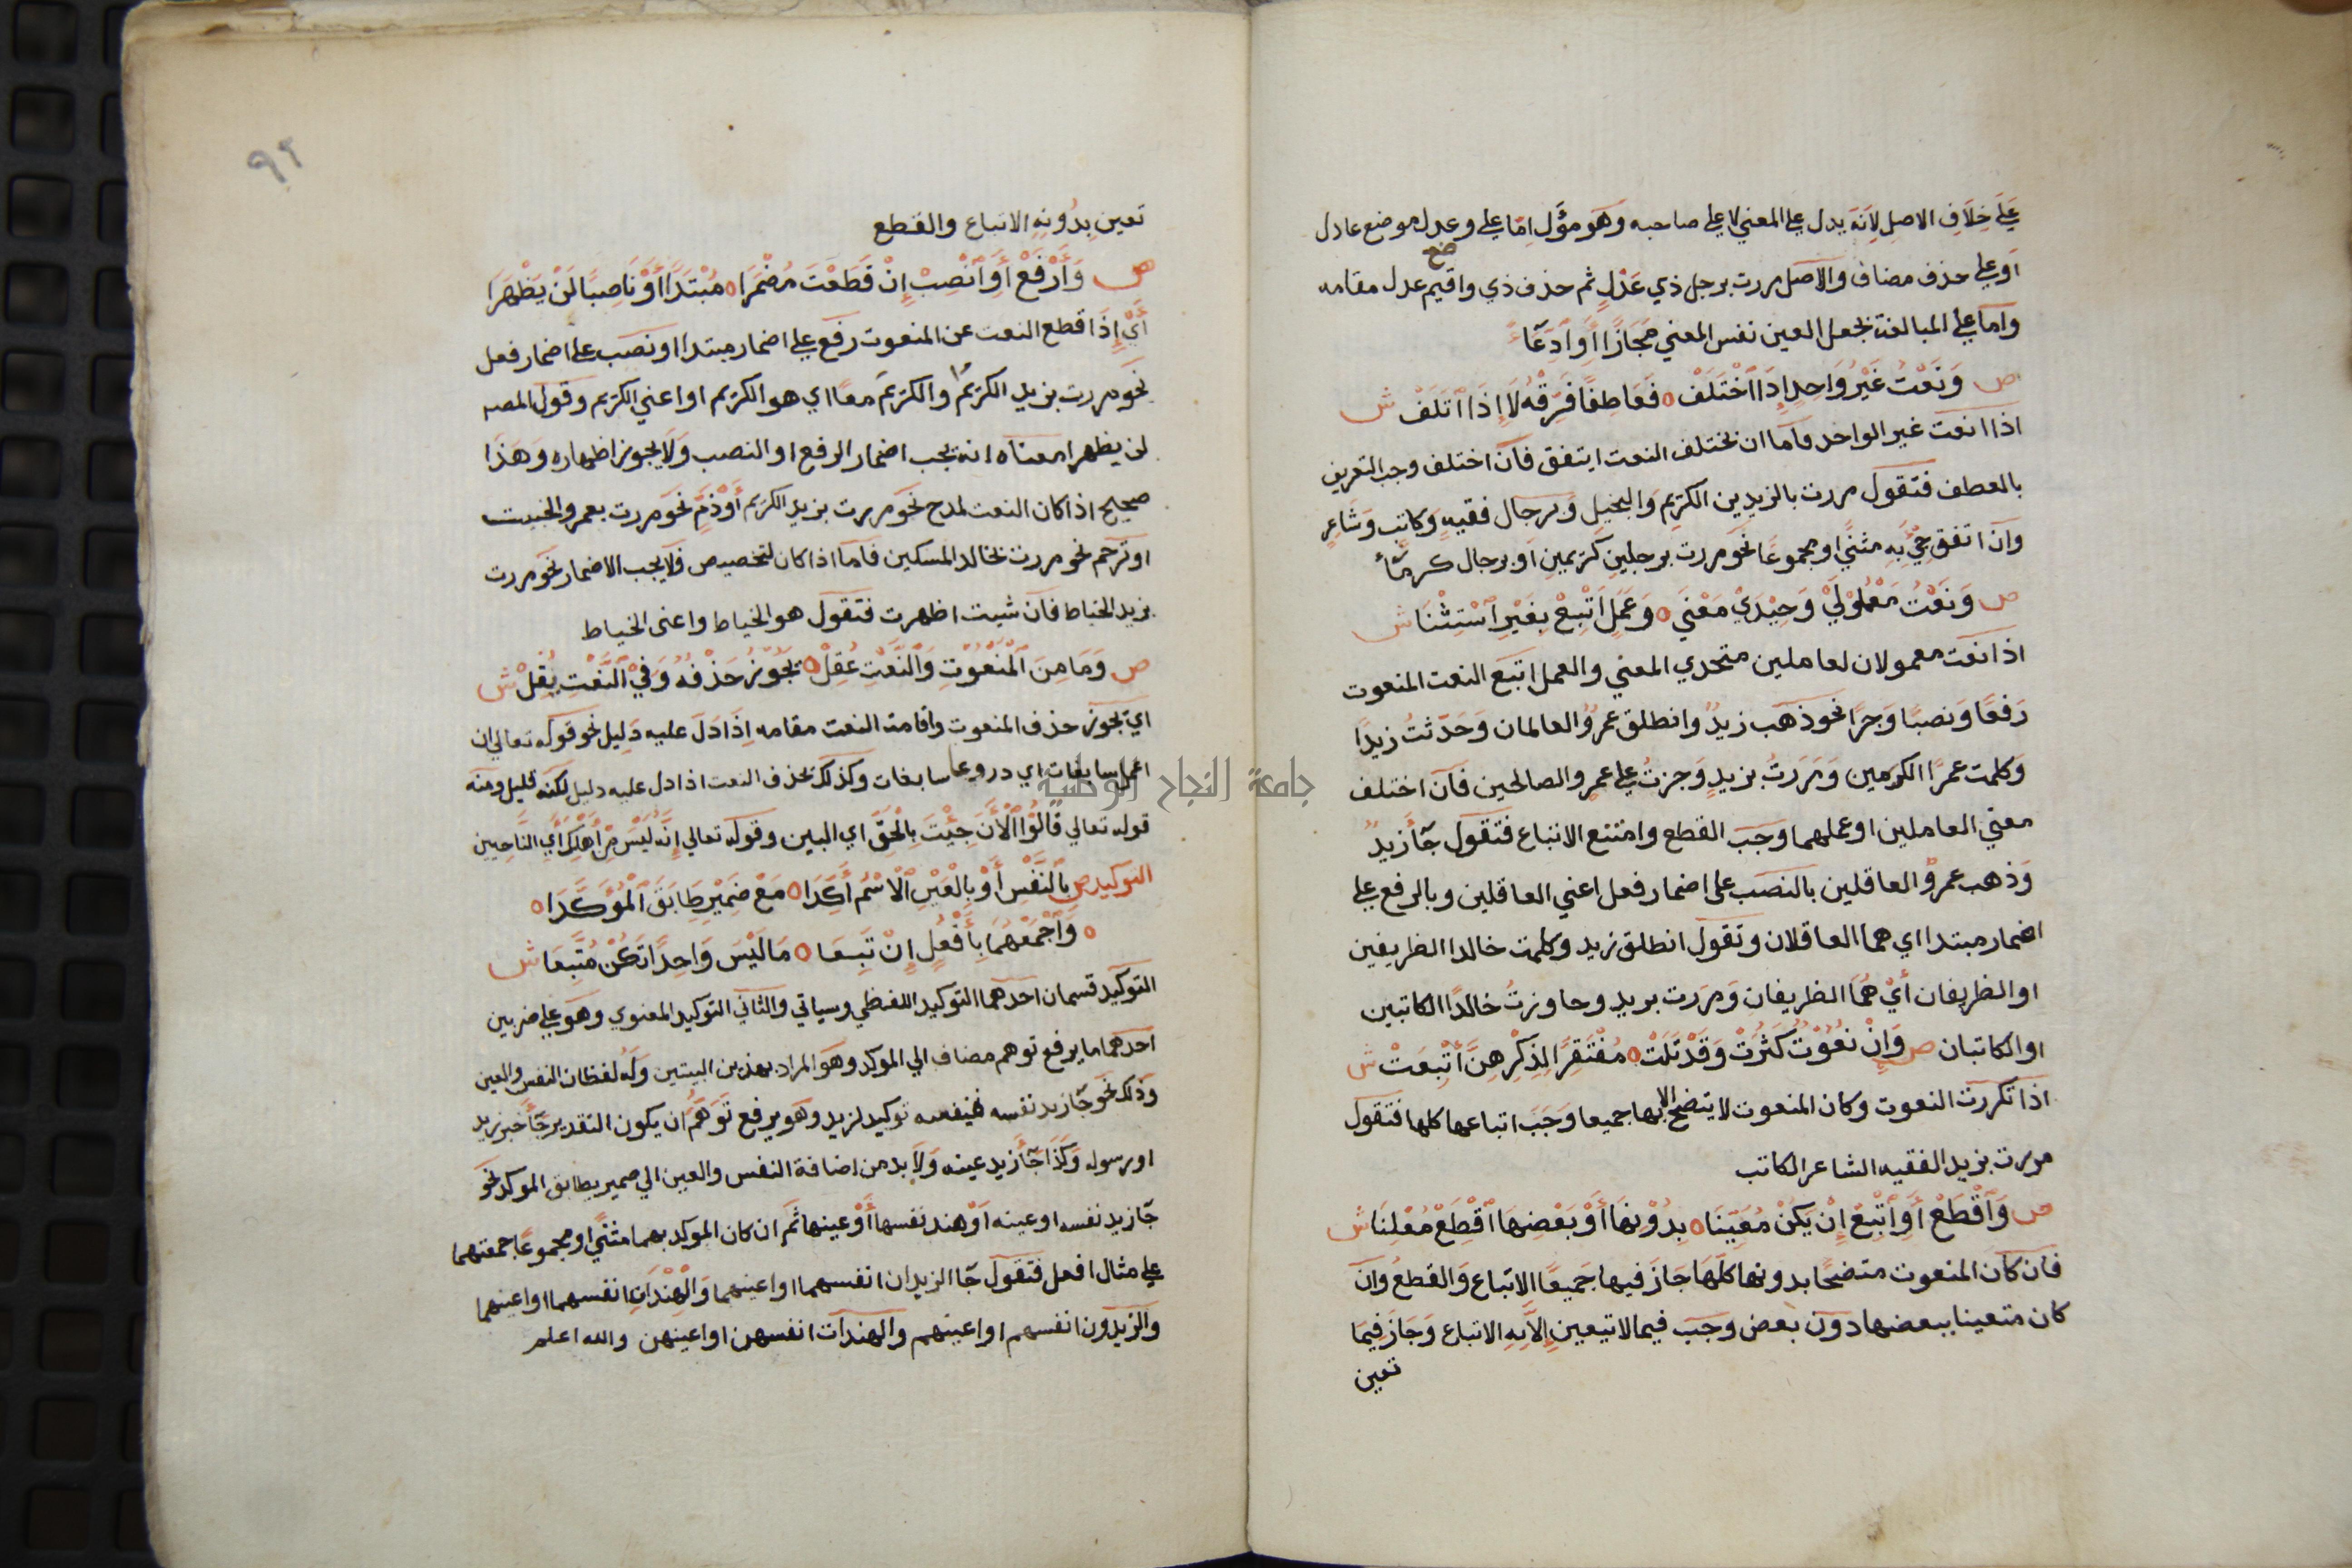 عَلَى خِلَافِ الاصلِ لِاَنّه يدل علي المعني لا علي صاحبه وَهو مؤَّل اِمّا علي وعدل موضع عادل
صح
اَو علي حذف مضاف والاصل مررت برجل ذي عَدْلٍ ثم حذف ذي واقيم عدل مقامه
وامّا علي المبالغة بجعل العين نفس المعني مَجَازًا أَوِ ٱدِّعَآءً
ص وَنَعْتُ غَيْرِ وَاحِدٍ إِذَا ٱخْتَلَفْ ٥ فَعَاطِفًا فَرِّقْهُ لَا إِذَا ٱئْتَلَفْ ش
اذا انعت غير الواحد فاما ان يختلف النعت ا يتفق فان اختلف وجب التعريف
بالعطف فتقول مررت بالزيدين الكريمِ وَالبخيلِ وَبرجال فقيهٍ وَكاتبٍ وَشَاعرٍ
وَان اتفق جِئَ بِهِ مثنًّي او مجموعًا نحو مررت برجلينِ كريمينِ اَو برجال كرمآء
ص وَنَعْتَ مَعْمُولَيْ وَحِيْدَيْ مَعْنَى ٥ وَعَمَلٍ اَتْبِعْ بِغَيْرِ ٱسْتِثْنَا ش
اذا نعت معمولان لعاملين متحدي المعني والعمل اتبَع النعت المنعوت
رَفعًا وَنصبًا وَجرًّا نحو ذهَب زيدٌ وانطلق عمرٌو العالمان وَحَدّثتُ زيدًا
وَكلمت عمرًا الكرمين وَمَرَرتُ بزيدٍ وَجزتُ علي عمرٍو الصالحين فَان اختلف
معنى العاملين او عملهما وجَبَ القطع وامتنع الاتباع فتقول جَآءَ زيدٌ
وَذهب عمرٌو العاقلين بالنصَب على اضمار فعل اعني العاقلين وبالرفع علي
اضمار مبتدا اي هما العاقلان وتقول انطلق زيد وكلمت خالدا الظريفين
او الظريفان أيْ هُمَا الظريفان وَمررت بريد وجاوزتُ خالدًا الكاتبين
او الكاتبان ص وَإِنْ نُعُوْتٌ كَثُرَتْ وَقَدْ تَلَتْ ٥ مُفْتَقِرًا لِذِكْرِهِنَّ أُتْبِعَتْ ش
اذا تكررت النعوت وكان المنعوت لا يتضح الا بها جميعا وَجَبَ اتباعها كلها فتقول
مررت بزيد الفقيه الشاعر الكاتب
ص وَٱقْطَعْ أَوِ ٱتْبِعْ إِنْ يَكُنْ مُعَيَّنَا ٥ بِدُوْنِهَا أَوْ بَعْضِهَا ٱقْطَعْ مُعْلِنَا ش
فان كان المنعوت متضحًا بدونها كلّهَا جَازَ فيها جَميعًا الاتباع وَالقطعُ وَان
كان متعينا ببعضها دوَن بعض وجَب فيما لا تيعين إِلَّا بِهِ الاتباع وَجَازَ فِيمَا
تعين
٩٢
تعين بِدُونِهِ الاتباع والقطع
ص وَٱرْفَعْ أَوِ ٱنْصِبْ إِنْ قَطَعْتَ مُضْمِرَا ٥ مُبْتَدًا أَوْ نَاصِبًا لَنْ يَظْهَرَا
أَيْ إِذَا قطع النعت عن المنعوت رفع علي اضمار مبتدا او نصَب على اضمار فعل
نحو مررت بزيد الكريمُ والكريمَ معًا اي هو الكريم او اعني الكريم وقول المصه
لن يظهرا معناه انه يجب اضمار الرفع او النصب وَلا يجوز اظهاره وَهَذَا
صحيح اذا كان النعت لمدح نحو مررت بزيد الكريم أَوْ ذَمٍّ نحو مررت بعمرو الخبيث
او ترَحم نحو مررت بخالد المسكين فامّا اذا كان لتخصيص فلا يجب الاضمار نحو مررت
بزيد الخياط فان شيت اظهرت فتقول هو الخياط واعنى الخياط
ص وَمَا مِنَ ٱلْمَنْعُوْتِ وَٱلنَّعْتِ عُقِلْ ٥ يَجُوْزُ حَذْفُهُ وَفِيْ ٱلنَّعْتِ يَقِلْ ش
اي يجوز حذف المنعوت واقامة النعت مقامه اِذَا دَل عليه دَليل نحو قوله تعالي ان
اعمل سابغات اي دروعا سابغات وكذلك يحذف النعت اذا دل عليه دليل لكنه قليل ومنه
قوله تعالي قَالُوْا ٱلْأَنَ جِئْتَ بِالْحَقِّ اي البين وقوله تعالي إِنَّهُ لَيْسَ مِنْ أَهْلِكَ أَي النّاجيين
التوكيد ص بِالنَّفْسِ أَوْ بِالعَيْنِ ٱلْاسْمُ أُكِّدَا ٥ مَعْ ضَمِيْرٍ طَابَقَ ٱلْمُؤَكَّدَا ٥
٥ وَٱجْمَعْهُمَا بِأَفْعُلٍ إِنْ تَبِعَا ٥ مَا لَيْسَ وَاحِدًا تَكُنْ مُتَّبِعَا ش
التوكيد قسمان احدهما التوكيد اللفظي وسياتي والثاني التوكيد المعنوي وهو علي ضربين
احدهما ما يرفع توهم مضاف الي الموكد وهو المراد بهذين البيتين وَله لفظان النفس والعين
وذلك نحو جَآ زيد نفسه فنفسه توكيد لزيد وهو يرفع تَوَهُّم ان يكون التقدير جَآءَ خبر زيد
او رسوله وَكذَا جَآءَ زيد عينه وَلَا بد من اضافة النفس والعين الي ضمير يطابق الموكد نحو
جَآ زيد نفسه او عينه اَوْ هند نفسها أَوْ عينها ثم ان كان الموكد بهما مثنّي او مجموعًا جمعتهما
علي مثال افعل فتقول جَآ الزيدان انفسهما او اعينهما وَالْهِنْدَانِ انفسهما او اعينهما
والزيدون انفسهم او اعينهم والهندات انفسهن او اعينهن والله اعلم
جامعة النجاح الوطنية